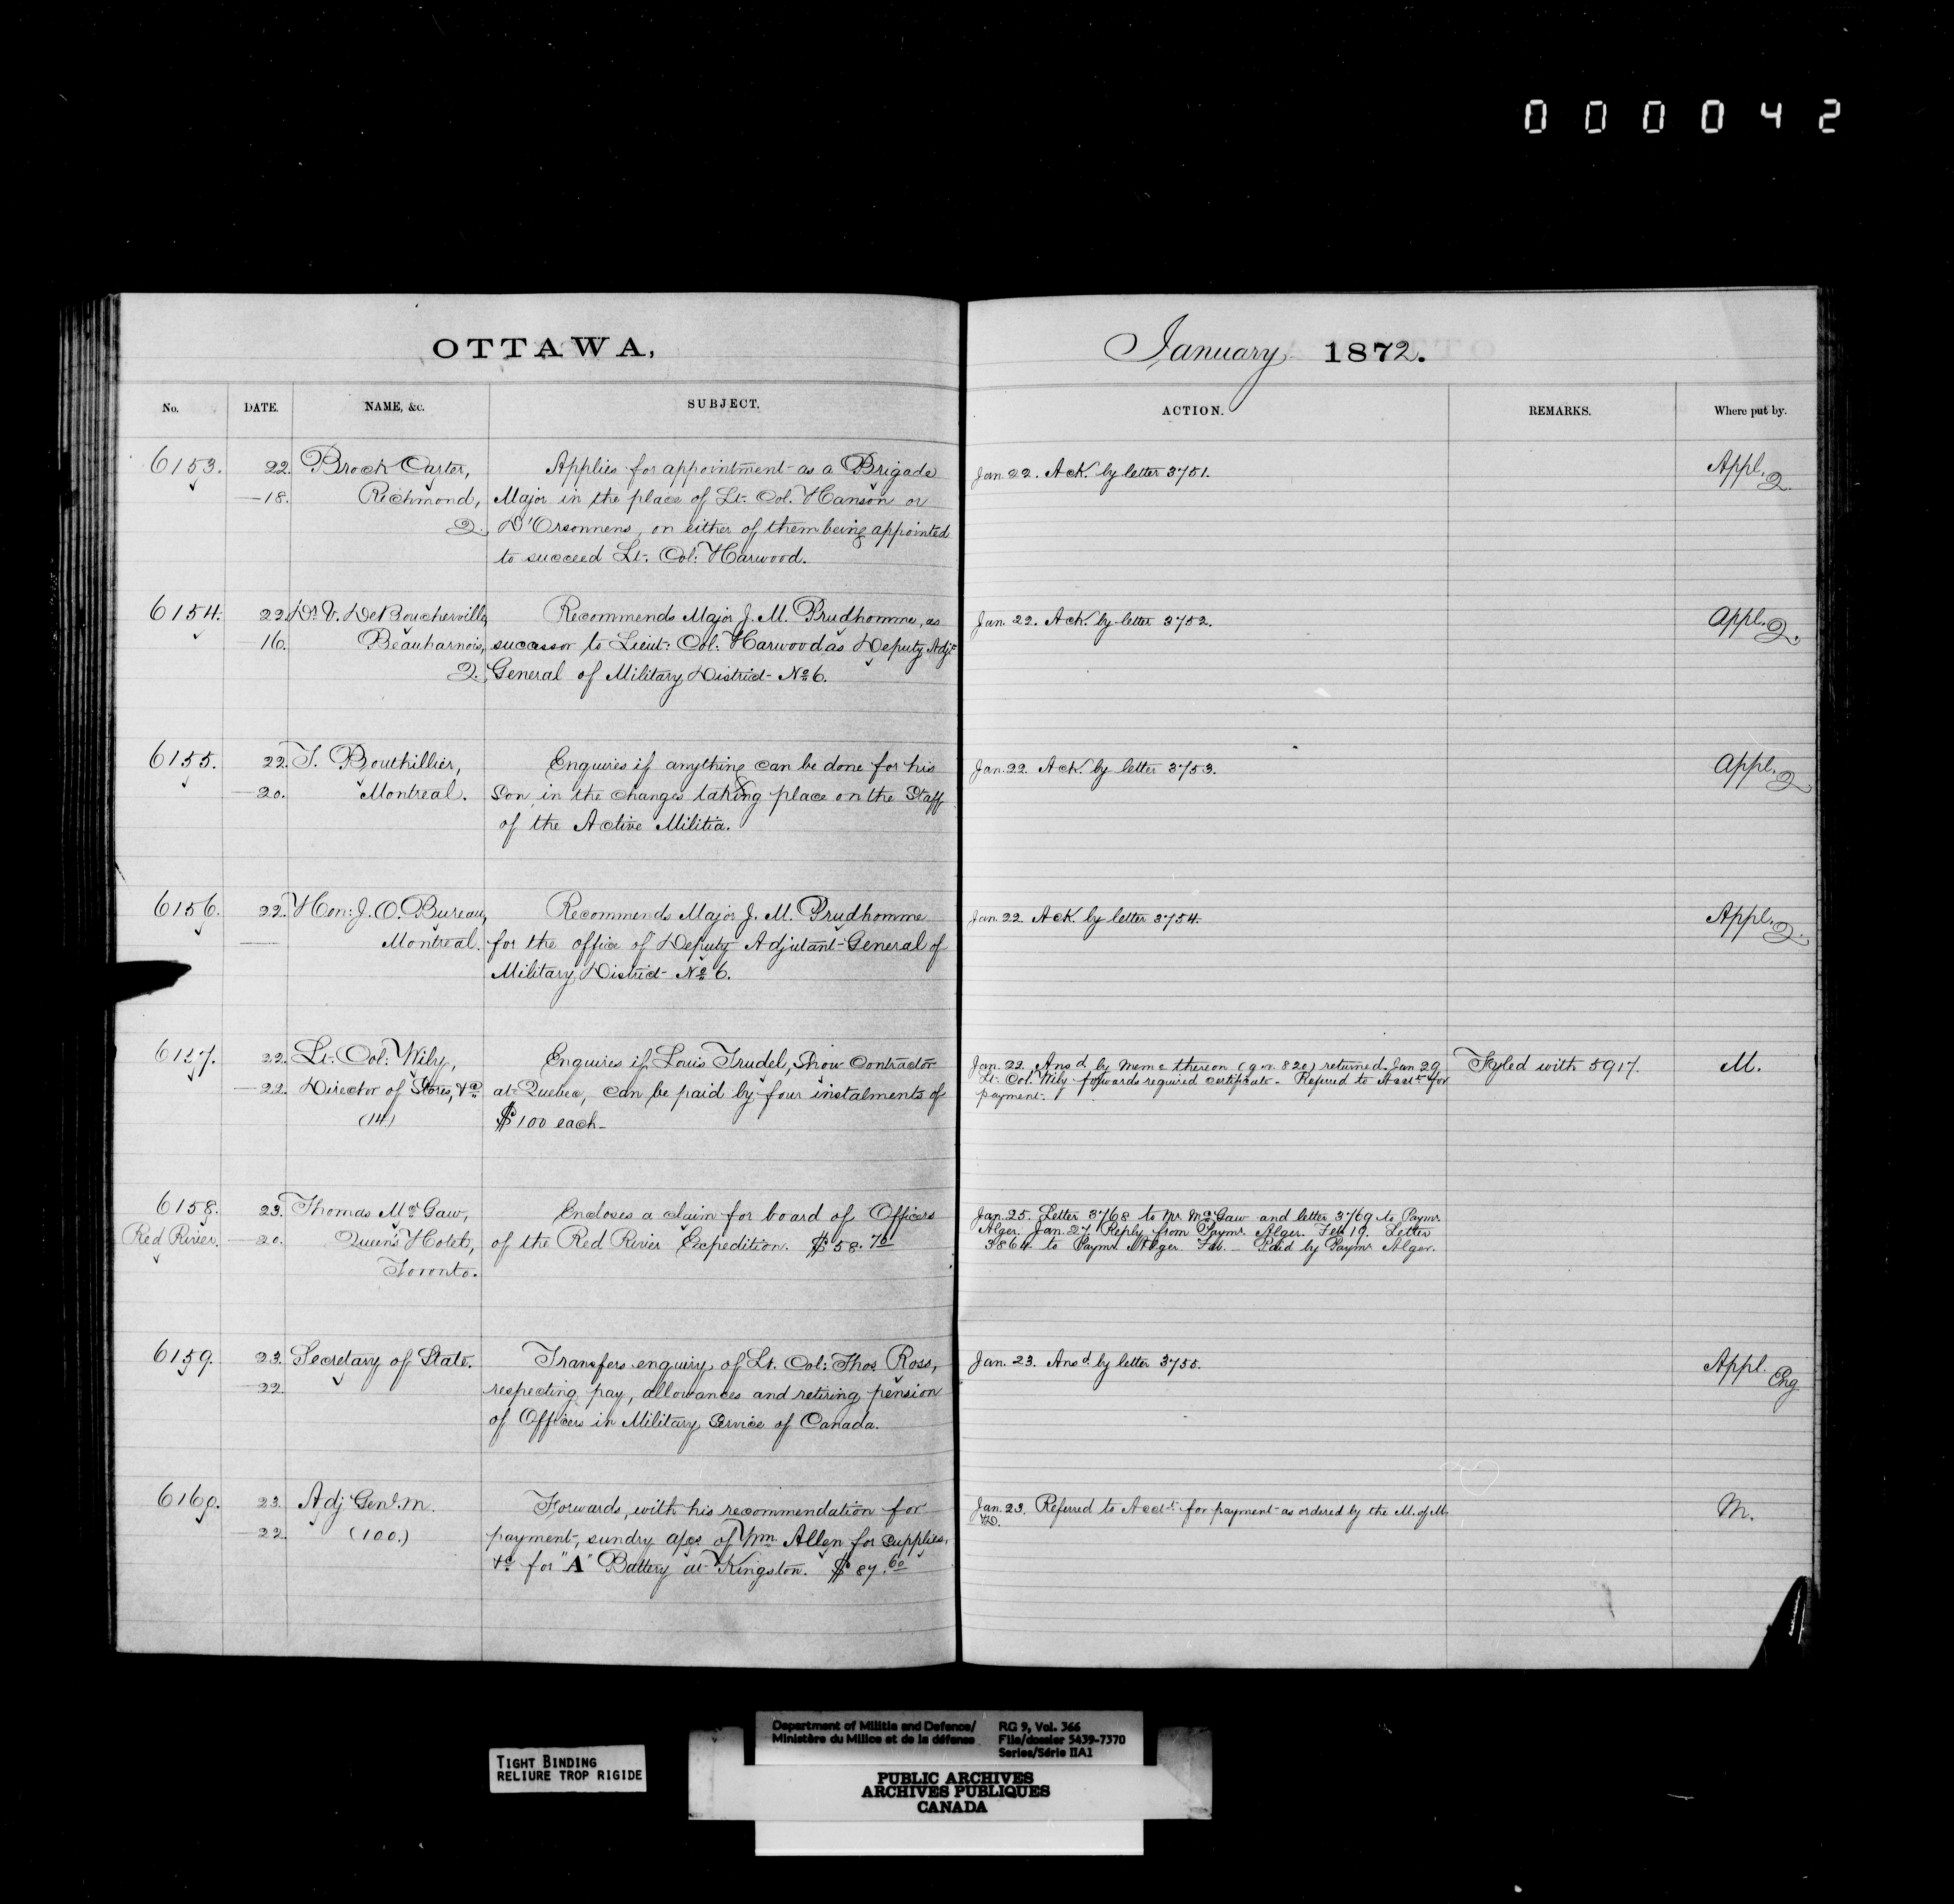 000042
OTTAWA,
January 1872.
No. DATE. NAME, &c. SUBJECT. ACTION. REMARKS. Where put by.
6153. 22. Brock Carter, Applies for appointment as a Brigade Jan. 22. Ack. by letter 3751. Appl. Q.
—18. Richmond, Major in the place of Lt. Col. Hanson or
Q. D'Orsonnens, on either of them being appointed
to succeed Lt. Col: Harwood.
6154. 22. Dr. V. DeBoucherville, Recommends Major J. M. Prudhomme, as Jan. 22. Ack. by letter 3752. Appl. Q.
16. Beauharnois, successor to Lieut: Col: Harwood as Deputy Adjt.
Q. General of Military District No. 6.
6155. 22. T. Bouthillier, Enquires if anything can be done for his Jan. 22. Ack. by letter 3753. Appl. Q
—20. Montreal. Son, in the changes taking place on the Staff
of the Active Militia.
6156. 22. Hon: J. O. Bureau, Recommends Major J. M. Prudhomme Jan. 22. Ack. by letter 3754. Appl. Q.
— Montreal. for the office of Deputy Adjutant-General of
Military District No. 6.
6157. 22. Lt. Col: Wily, Enquires if Louis Trudel, Snow Contractor Jan. 22. Ansd. by memo thereon (g.n. 820) returned. Jan 29 Fyled with 5917. M.
—22. Director of Stores, &c. at Quebec, can be paid by four instalments of Lt. Col. Wily forwards required certificate. Referred to Acct. for
(14) $100 each— payment.
6158. 23. Thomas McGaw, Encloses a claim for board of Officers Jan. 25. Letter 3768 to Mr. McGaw and letter 3769 to Paymr.
Red River. —20. Queen's Hotel, of the Red River Expedition. $58.70 Alger. Jan. 27 Reply from Paymr. Alger. Feb 19. Letter
Toronto. 3864 to Paymr. Alger. Feb. — Paid by Paymr. Alger.
6159. 23. Secretary of State. Transfers enquiry of Lt. Col: Thos. Ross, Jan. 23. Ansd. by letter 3755. Appl. Eng
—22. respecting pay, allowances and retiring pension
of Officers in Military Service of Canada.
6160. 23. Adj. Genl. M. Forwards, with his recommendation for Jan. 23. Referred to Acct. for payment as ordered by the M. of M. M.
—22. (100.) payment, sundry a/cs. of Wm. Allen for supplies, &D.
&c. for "A" Battery at Kingston. $87.60
TIGHT BINDING
RELIURE TROP RIGIDE
Department of Militia and Defence/ RG 9, Vol. 366
Ministère du Milice et de la défense File/dossier 5439-7370
Series/Série IIA1
PUBLIC ARCHIVES
ARCHIVES PUBLIQUES
CANADA